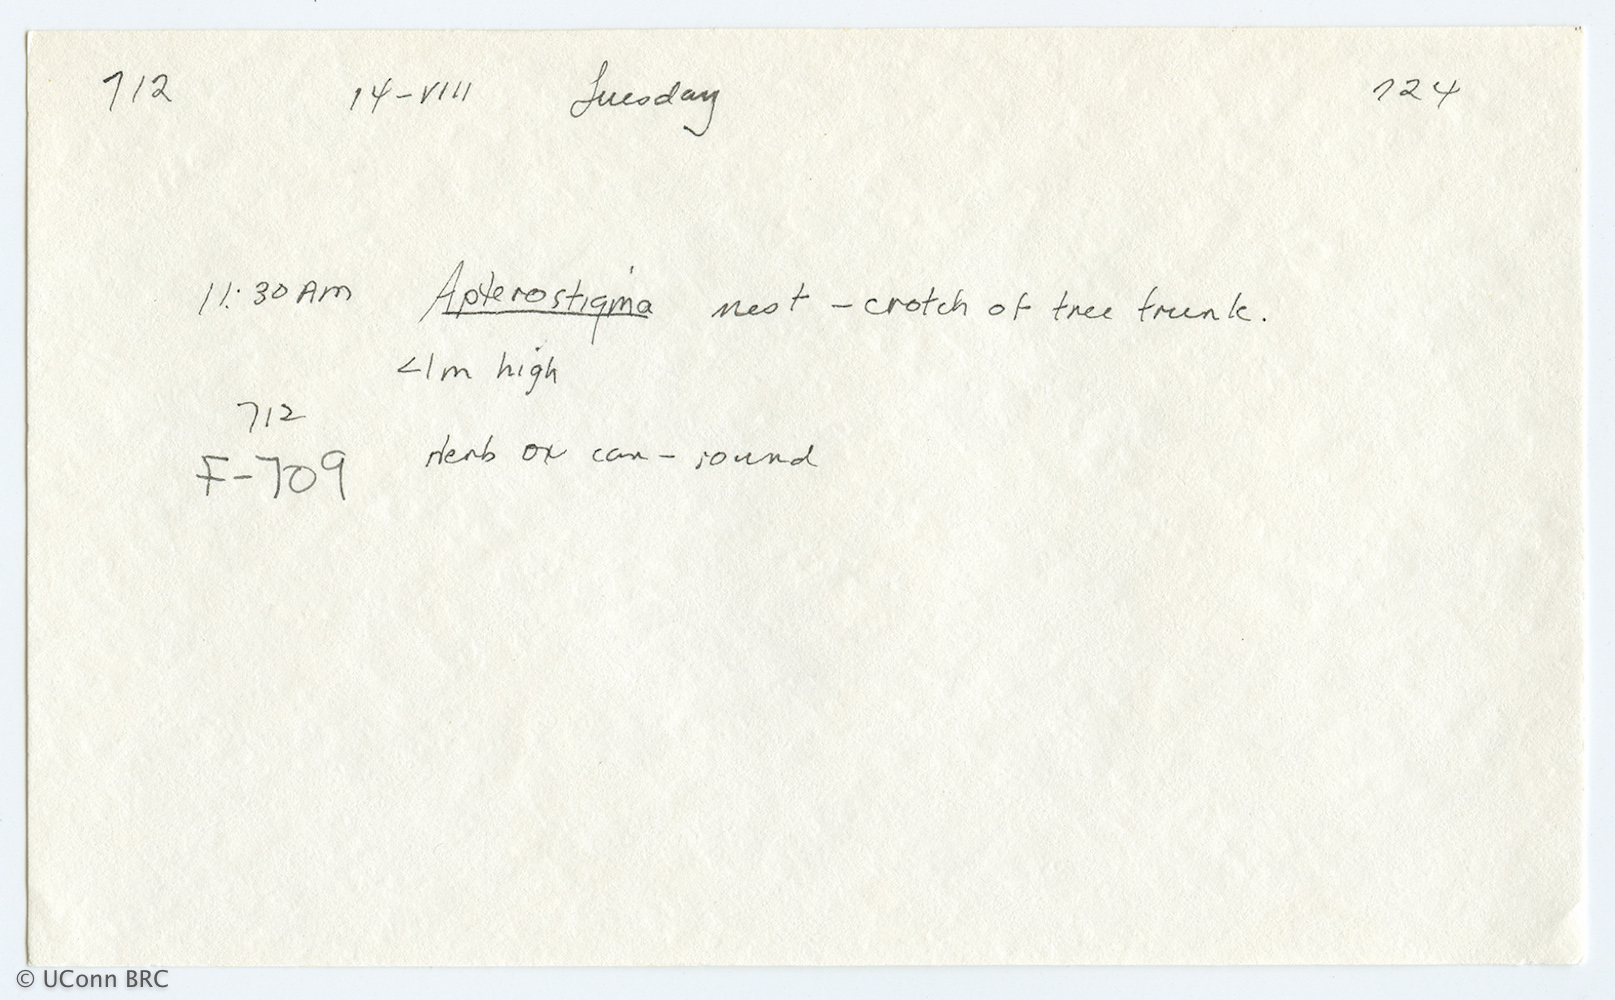 712 14-VIII Tuesday 724
11:30 AM Apterostigma nest - crotch of tree trunk.
<1m high
712
F-709 Herb ox can - round
© UConn BRC